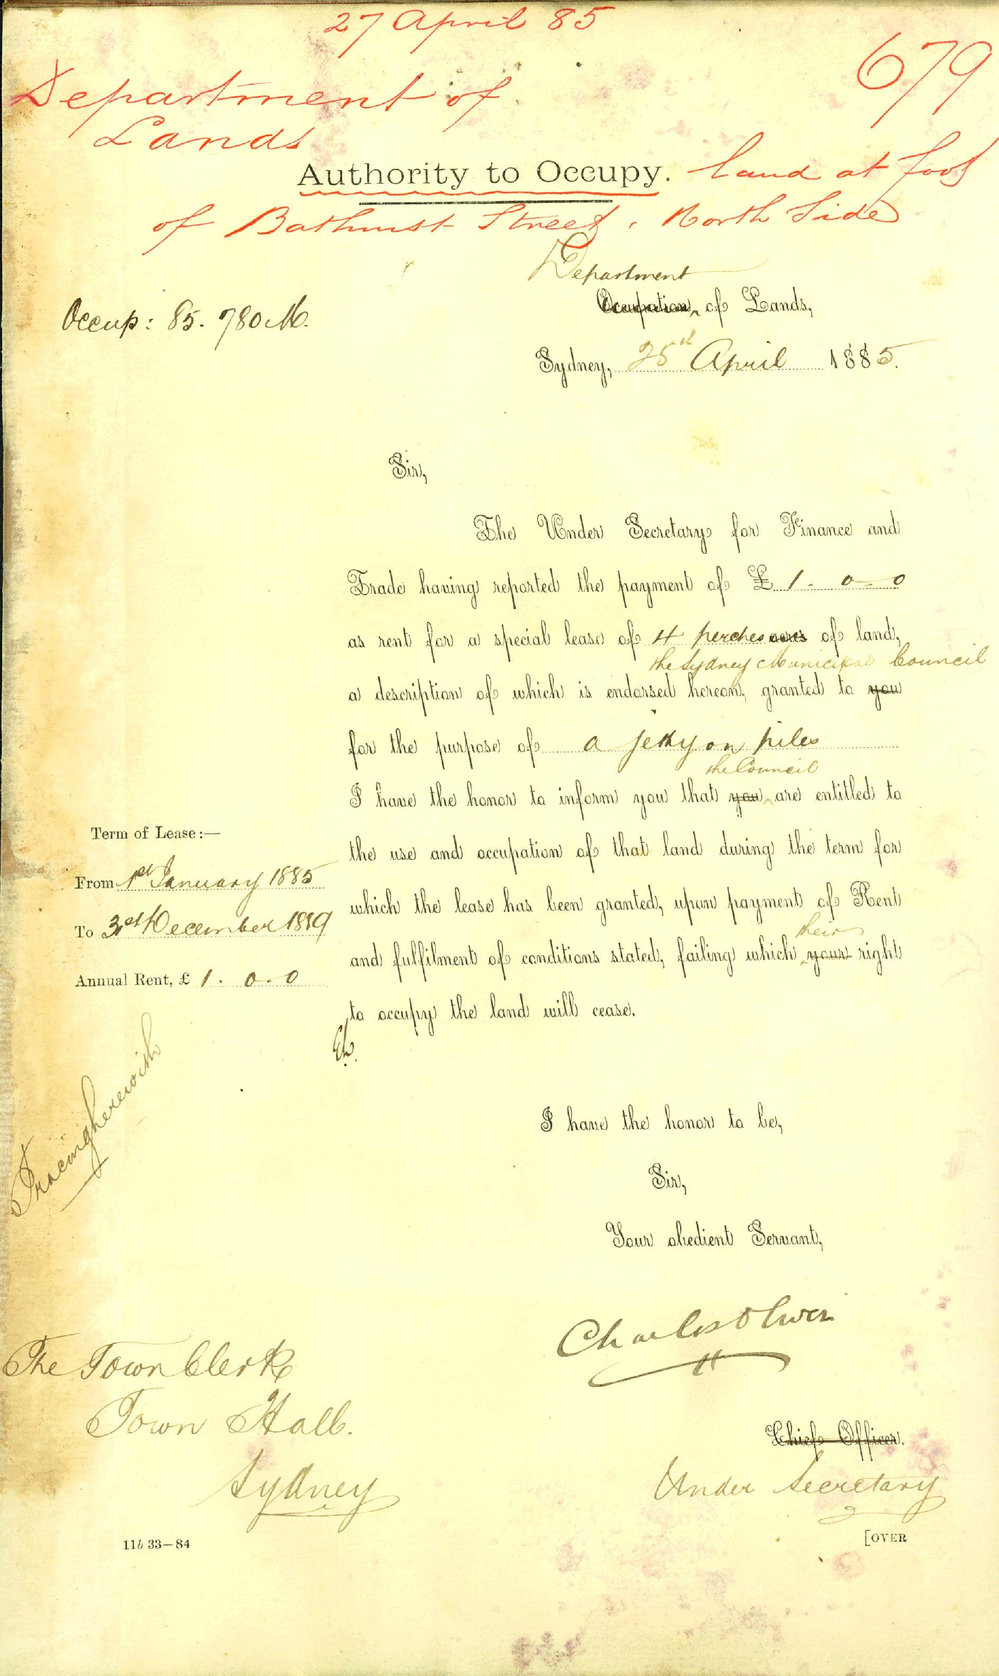 27 April 85
679
Department of
Lands
Authority to Occupy. land at foot
of Bathurst Street, North Side
Department
Occupation of Lands,
Occup: 85. 780 M.
Sydney, 25th April 1885.
Sir,
The Under Secretary for Finance and
Trade having reported the payment of £ 1 - 0 - 0
as rent for a special lease of 4 perches acres of land,
the Sydney Municipal Council
a description of which is endorsed hereon, granted to you
for the purpose of a jetty on piles
the Council
I have the honor to inform you that you are entitled to
the use and occupation of that land during the term for
which the lease has been granted, upon payment of Rent
their
and fulfilment of conditions stated, failing which your right
to occupy the land will cease.
Term of Lease:—
From 1st January 1885
To 31st December 1889
Annual Rent, £ 1 . 0 . 0
Tracing herewith
I have the honor to be,
Sir,
Your obedient Servant,
Charles Oliver
Chief Officer.
Under Secretary
The Town Clerk
Town Hall.
Sydney
11b 33—84
[OVER